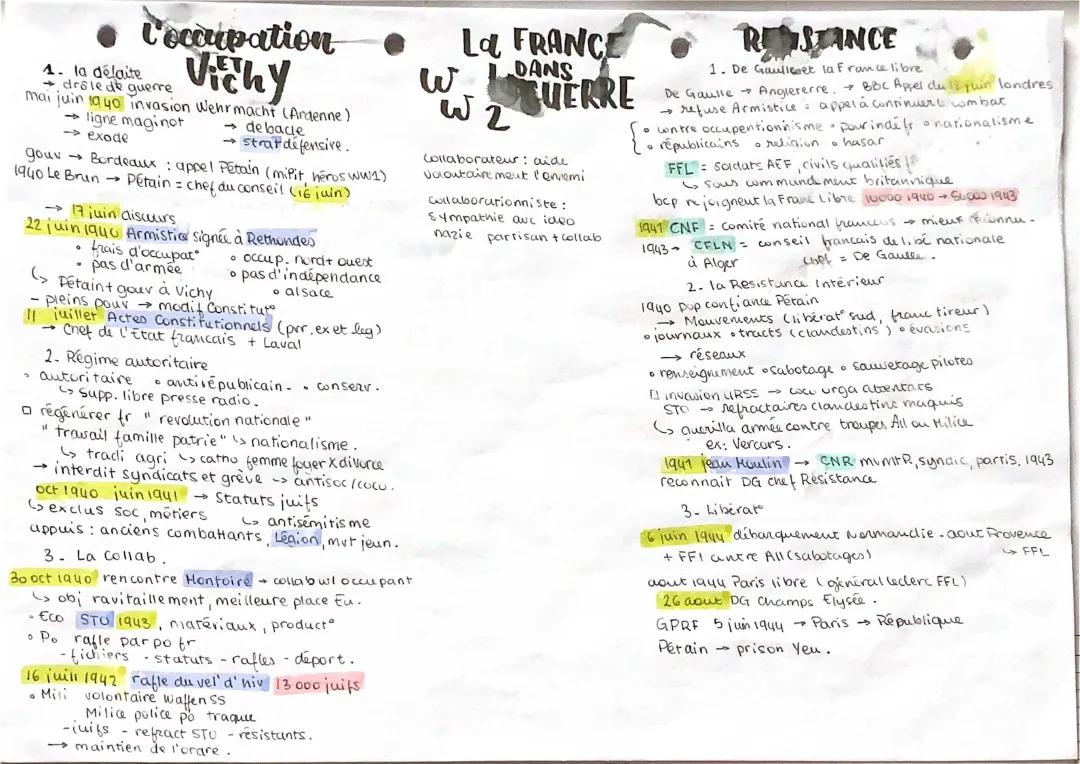 L'occupation
ET
Vichy
1. la défaite
→ drôle de guerre
mai juin 1940 invasion Wehrmacht (Ardenne)
→ ligne maginot → debacle
→ exode → strat défensive.
gouv → Bordeaux : appel Pétain (milit héros WW1)
1940 Le Brun → Pétain = chef du conseil (16 juin)
→ 17 juin discurs
22 juin 1940 Armistice signée à Rethondes
• frais d'occupat° • occup. nord + ouest
• pas d'armée • pas d'indépendance
↳ Pétain + gouv à Vichy • alsace
- pleins pouv → modif Constitut°
11 juillet Actes Constitutionnels (pvr. ex et leg)
→ Chef de l'État français + Laval
2. Régime autoritaire
• autoritaire • antirépublicain - • conserv.
↳ supp. libre presse radio.
□ régénérer fr " revolution nationale"
" travail famille patrie" ↳ nationalisme.
↳ tradi agri ↳ catho femme foyer X divorce
→ interdit syndicats et grève -> antisoc/coco.
oct 1940 juin 1941 → Statuts juifs
↳ exclus soc, métiers ↳ antisémitisme
appuis : anciens combattants, Légion, mvt jeun.
3. La Collab.
30 oct 1940 rencontre Montoire → collab w/ occupant
↳ obj ravitaillement, meilleure place Eu.
• Eco STO 1943, matériaux, product°
• Po rafle par po fr
- fichiers - statuts - rafles - déport.
16 juill 1942 rafle du vel' d' hiv 13 000 juifs
• Mili volontaire Waffen SS
Milice police po traque
- juifs - refract STO - résistants.
→ maintien de l'ordre.
La FRANCE
DANS
LA GUERRE
W W 2
collaborateur : aide
volontairement l'ennemi
collaborationniste :
sympathie avc ideo
nazie partisan + collab
RESISTANCE
1. De Gaulle et la France libre
De Gaulle → Angleterre. → BBC Appel du 18 juin londres
→ refuse Armistice = appel à continuer l combat
• contre occupentionnisme • pour indé fr • nationalisme
• républicains • religion • hasar
FFL = soldats AEF, civils qualifiés
↳ sous commandement britannique
bcp rejoignent la France Libre 10000 1940 →
1941 CNF = comité national francais → mieux reconnu.
1943 → CFLN = conseil francais de libé nationale
à Alger chef = De Gaulle.
2. la Resistance Intérieur
1940 pop confiance Pétain
→ Mouvements (libérat° sud, franc tireur)
• journaux • tracts (clandestins) • évasions
→ réseaux
• renseignement • sabotage • sauvetage pilotes
□ invasion URSS → coco orga attentats
STO → refractaires clandestins maquis
↳ guerilla armée contre troupes All ou Milice
ex: Vercors.
1941 jean Moulin → CNR mvmtR, syndic, partis, 1943
reconnait DG chef Résistance
3. Libérat°
6 juin 1944 débarquement Normandie - aout Provence
+ FFI contre All (sabotages) ↳ FFL
aout 1944 Paris libre (général leclerc FFL)
26 aout DG Champs Elysée.
GPRF 5 juin 1944 → Paris → République
Pétain → prison Yeu.